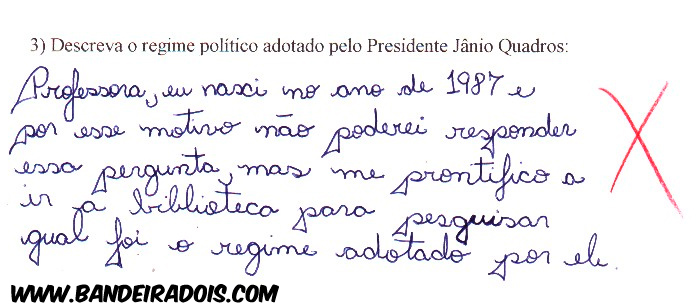 3) Descreva o regime político adotado pelo Presidente Jânio Quadros:
Professora, eu nasci no ano de 1987 e
por esse motivo não poderei responder
essa pergunta, mas me prontifico a
ir a biblioteca para pesguisar
gual foi o regime adotado por ele.
WWW.BANDEIRADOIS.COM